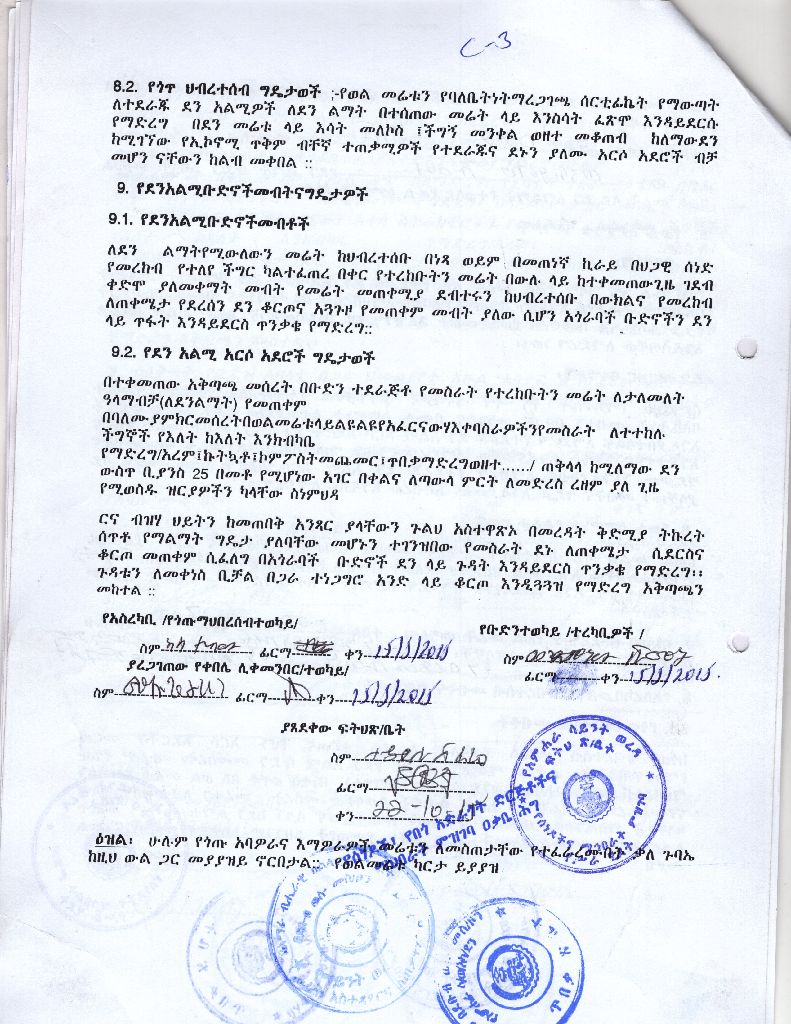 C-3
8.2. የጎዋ ህብረተሰብ ግዴታወች ;-የወል መሬቱን የባለቤትነትማረጋገጫ ሰርቲፊኬት የማውጣት
ለተደራጁ ደን አልሚዎች ለደን ልማት በተሰጠው መሬት ላይ እንስሳት ፈጽሞ እንዳይደርሱ
የማድረግ በደን መሬቱ ላይ እሳት መለኮስ ፣ችግኝ መንቀል ወዘተ መቆጠብ ከለማውደን
ከሚገኘው የኢኮኖሚ ጥቅም ብቸኛ ተጠቃሚዎች የተደራጁና ደኑን ያለሙ አርሶ አደሮች ብቻ
መሆን ናቸውን ከልብ መቀበል ::
9. የደንአልሚቡድኖችመብትናግዴታዎች
9.1. የደንአልሚቡድኖችመብቶች
ለደን ልማትየሚውለውን መሬት ከህብረተሰቡ በነጻ ወይም በመጠነኛ ኪራይ በህጋዊ ሰነድ
የመረከብ የተለየ ችግር ካልተፈጠረ በቀር የተረከቡትን መሬት በውሉ ላይ ከተቀመጠውጊዜ ገደብ
ቀድሞ ያለመቀማት መብት የመሬት መጠቀሚያ ደብተሩን ከህብረተሰቡ በውክልና የመረከብ
ለጠቀሜታ የደረሰን ደን ቆርጦና አጓጉዞ የመጠቀም መብት ያለው ሲሆን አጎራባች ቡድኖችን ደን
ላይ ጥፋት እንዳይደርስ ጥንቃቄ የማድረግ::
9.2. የደን አልሚ አርሶ አደሮች ግዴታወች
በተቀመጠው አቅጣጫ መሰረት በቡድን ተደራጅቶ የመስራት የተረከቡትን መሬት ለታለመለት
ዓላማብቻ(ለደንልማት) የመጠቀም
በባለሙያምክርመሰረትበወልመሬቱላይልዩልዩየአፈርናውሃእቀባስራዎችንየመስራት ለተተከሉ
ችግኞች የእለት ከእለት እንክብካቤ
የማድረግ/አረም፤ኩትኳቶ፤ኮምፖስትመጨመር፤ጥበቃማድረግወዘተ....../ ጠቅላላ ከሚለማው ደን
ውስጥ ቢያንስ 25 በመቶ የሚሆነው አገር በቀልና ለጣውላ ምርት ለመድረስ ረዘም ያለ ጊዜ
የሚወስዱ ዝርያዎችን ካላቸው ስነምህዳ
ርና ብዝሃ ህይትን ከመጠበቅ አንጻር ያላቸውን ጉልህ አስተዋጽኦ በመረዳት ቅድሚያ ትኩረት
ሰጥቶ የማልማት ግዴታ ያለባቸው መሆኑን ተገንዝበው የመስራት ደኑ ለጠቀሜታ ሲደርስና
ቆርጦ መጠቀም ሲፈልግ በአጎራባች ቡድኖች ደን ላይ ጉዳት እንዳይደርስ ጥንቃቄ የማድረግ፡፡
ጉዳቱን ለመቀነስ ቢቻል በጋራ ተነጋግሮ አንድ ላይ ቆርጦ እንዲጓጓዝ የማድረግ አቅጣጫን
መከተል ::
የአስረካቢ /የጎጡማህበረሰብተወካይ/
የቡድንተወካይ /ተረካቢዎች /
ስም ፊርማ ቀን 15/5/2015
ስም
ያረጋገጠው የቀበሌ ሊቀመንበር/ተወካይ/
ፊርማ ቀን 15/5/2015.
ስም ፊርማ ቀን 15/5/2015
ያጸደቀው ፍትህጽ/ቤት
ስም
ፊርማ
ቀን 22-10-15
ዕዝል፡ ሁሉም የጎጡ አባዎራና እማዎራዎች መሬቱን ለመስጠታቸው የተፈራረሙበት ቃለ ጉባኤ
ከዚህ ውል ጋር መያያዝይ ኖርበታል:: የወልመሬቱ ካርታ ይያያዝ